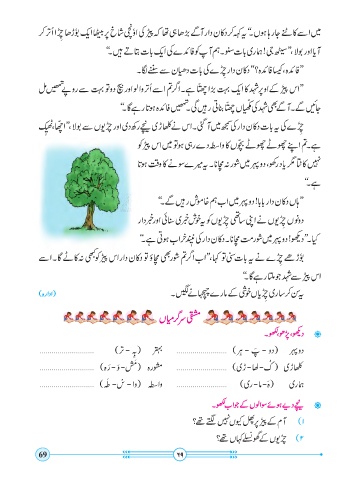 میں اسے کاٹنے جا رہا ہوں۔" یہ کہہ کر دکان دار آگے بڑھا ہی تھا کہ پیڑ کی اونچی شاخ پر بیٹھا ایک بوڑھا چِڑا اُتر کر
آیا اور بولا، "سیٹھ جی! ہماری بات سنو۔ ہم آپ کو فائدے کی ایک بات بتاتے ہیں۔"
"فائدہ، کیسا فائدہ؟" دکان دار چِڑے کی بات دھیان سے سننے لگا۔
"اس پیڑ کے اوپر شہد کا ایک بہت بڑا چھتّا ہے۔ اگر تم اُسے اُتروا لو اور بیچ دو تو بہت سے روپے تمھیں مل
جائیں گے۔ آگے بھی شہد کی مکھیاں چھتّا بناتی رہیں گی۔ تمھیں فائدہ ہوتا رہے گا۔"
چِڑے کی یہ بات دکان دار کی سمجھ میں آگئی۔ اس نے کلھاڑی نیچے رکھ دی اور چڑیوں سے بولا، "اچھا، ٹھیک
ہے۔ تم اپنے چھوٹے چھوٹے بچّوں کا واسطہ دے رہی ہو تو میں اس پیڑ کو
نہیں کاٹتا مگر یاد رکھو، دوپہر میں شور نہ مچانا۔ یہ میرے سونے کا وقت ہوتا
ہے۔"
"ہاں دکان دار بابا! دوپہر میں اب ہم خاموش رہیں گے۔"
دونوں چڑیوں نے اپنی ساتھی چڑیوں کو یہ خوش خبری سنائی اور خبردار
کیا۔ "دیکھو! دوپہر میں شور مت مچانا۔ دکان دار کی نیند خراب ہوتی ہے۔"
بوڑھے چِڑے نے یہ بات سنی تو کہا، "اب اگر تم شور بھی مچاؤ تو دکان دار اس پیڑ کو کبھی نہ کاٹے گا۔ اسے
اس پیڑ سے شہد جو ملتا رہے گا۔"
یہ سن کر ساری چڑیاں خوشی کے مارے چہچہانے لگیں۔ (ادارہ)
مشقی سرگرمیاں
دیکھو، پڑھو، لکھو۔
دوپہر (دو - پَ - ہر) .................... بہتر (بِہ - تَر) ....................
کلھاڑی (کُ - لھا - ڑی) .................... مشورہ (مَش - وَ - رَہ) ....................
ہماری (ہَ - ما - ری) .................... واسطہ (وا - سِ - طَہ) ....................
نیچے دیے ہوئے سوالوں کے جواب لکھو۔
۱) آم کے پیڑ پر پھل کیوں نہیں لگتے تھے؟
۲) چڑیوں کے گھونسلے کہاں تھے؟
۶۹
69